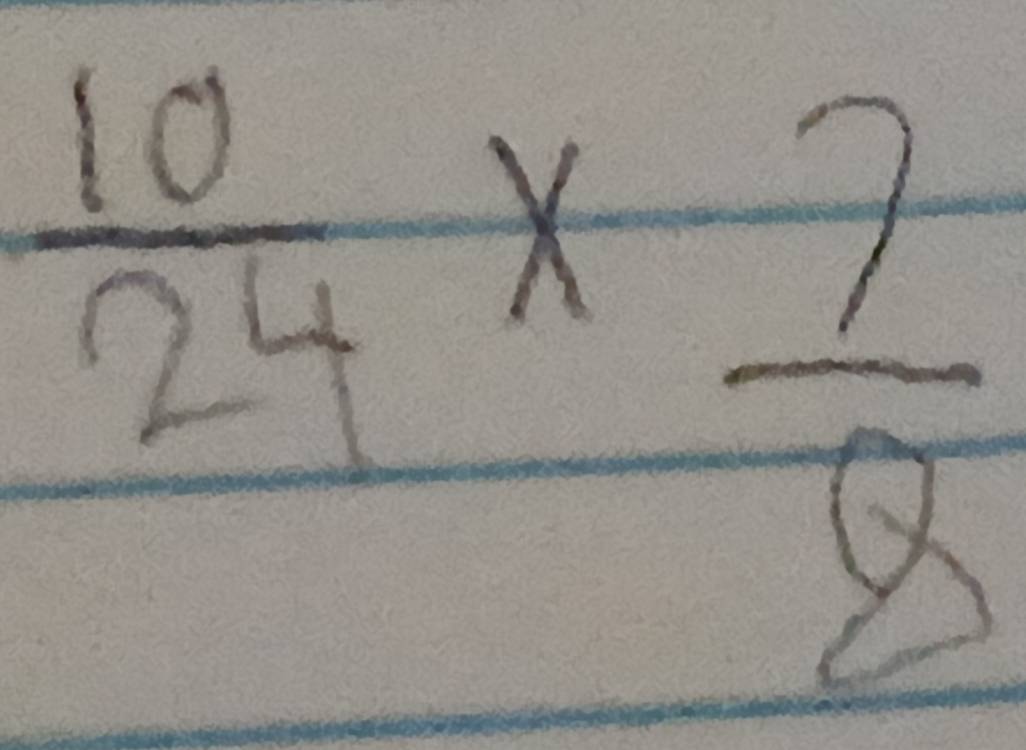 10/24 × 7/8